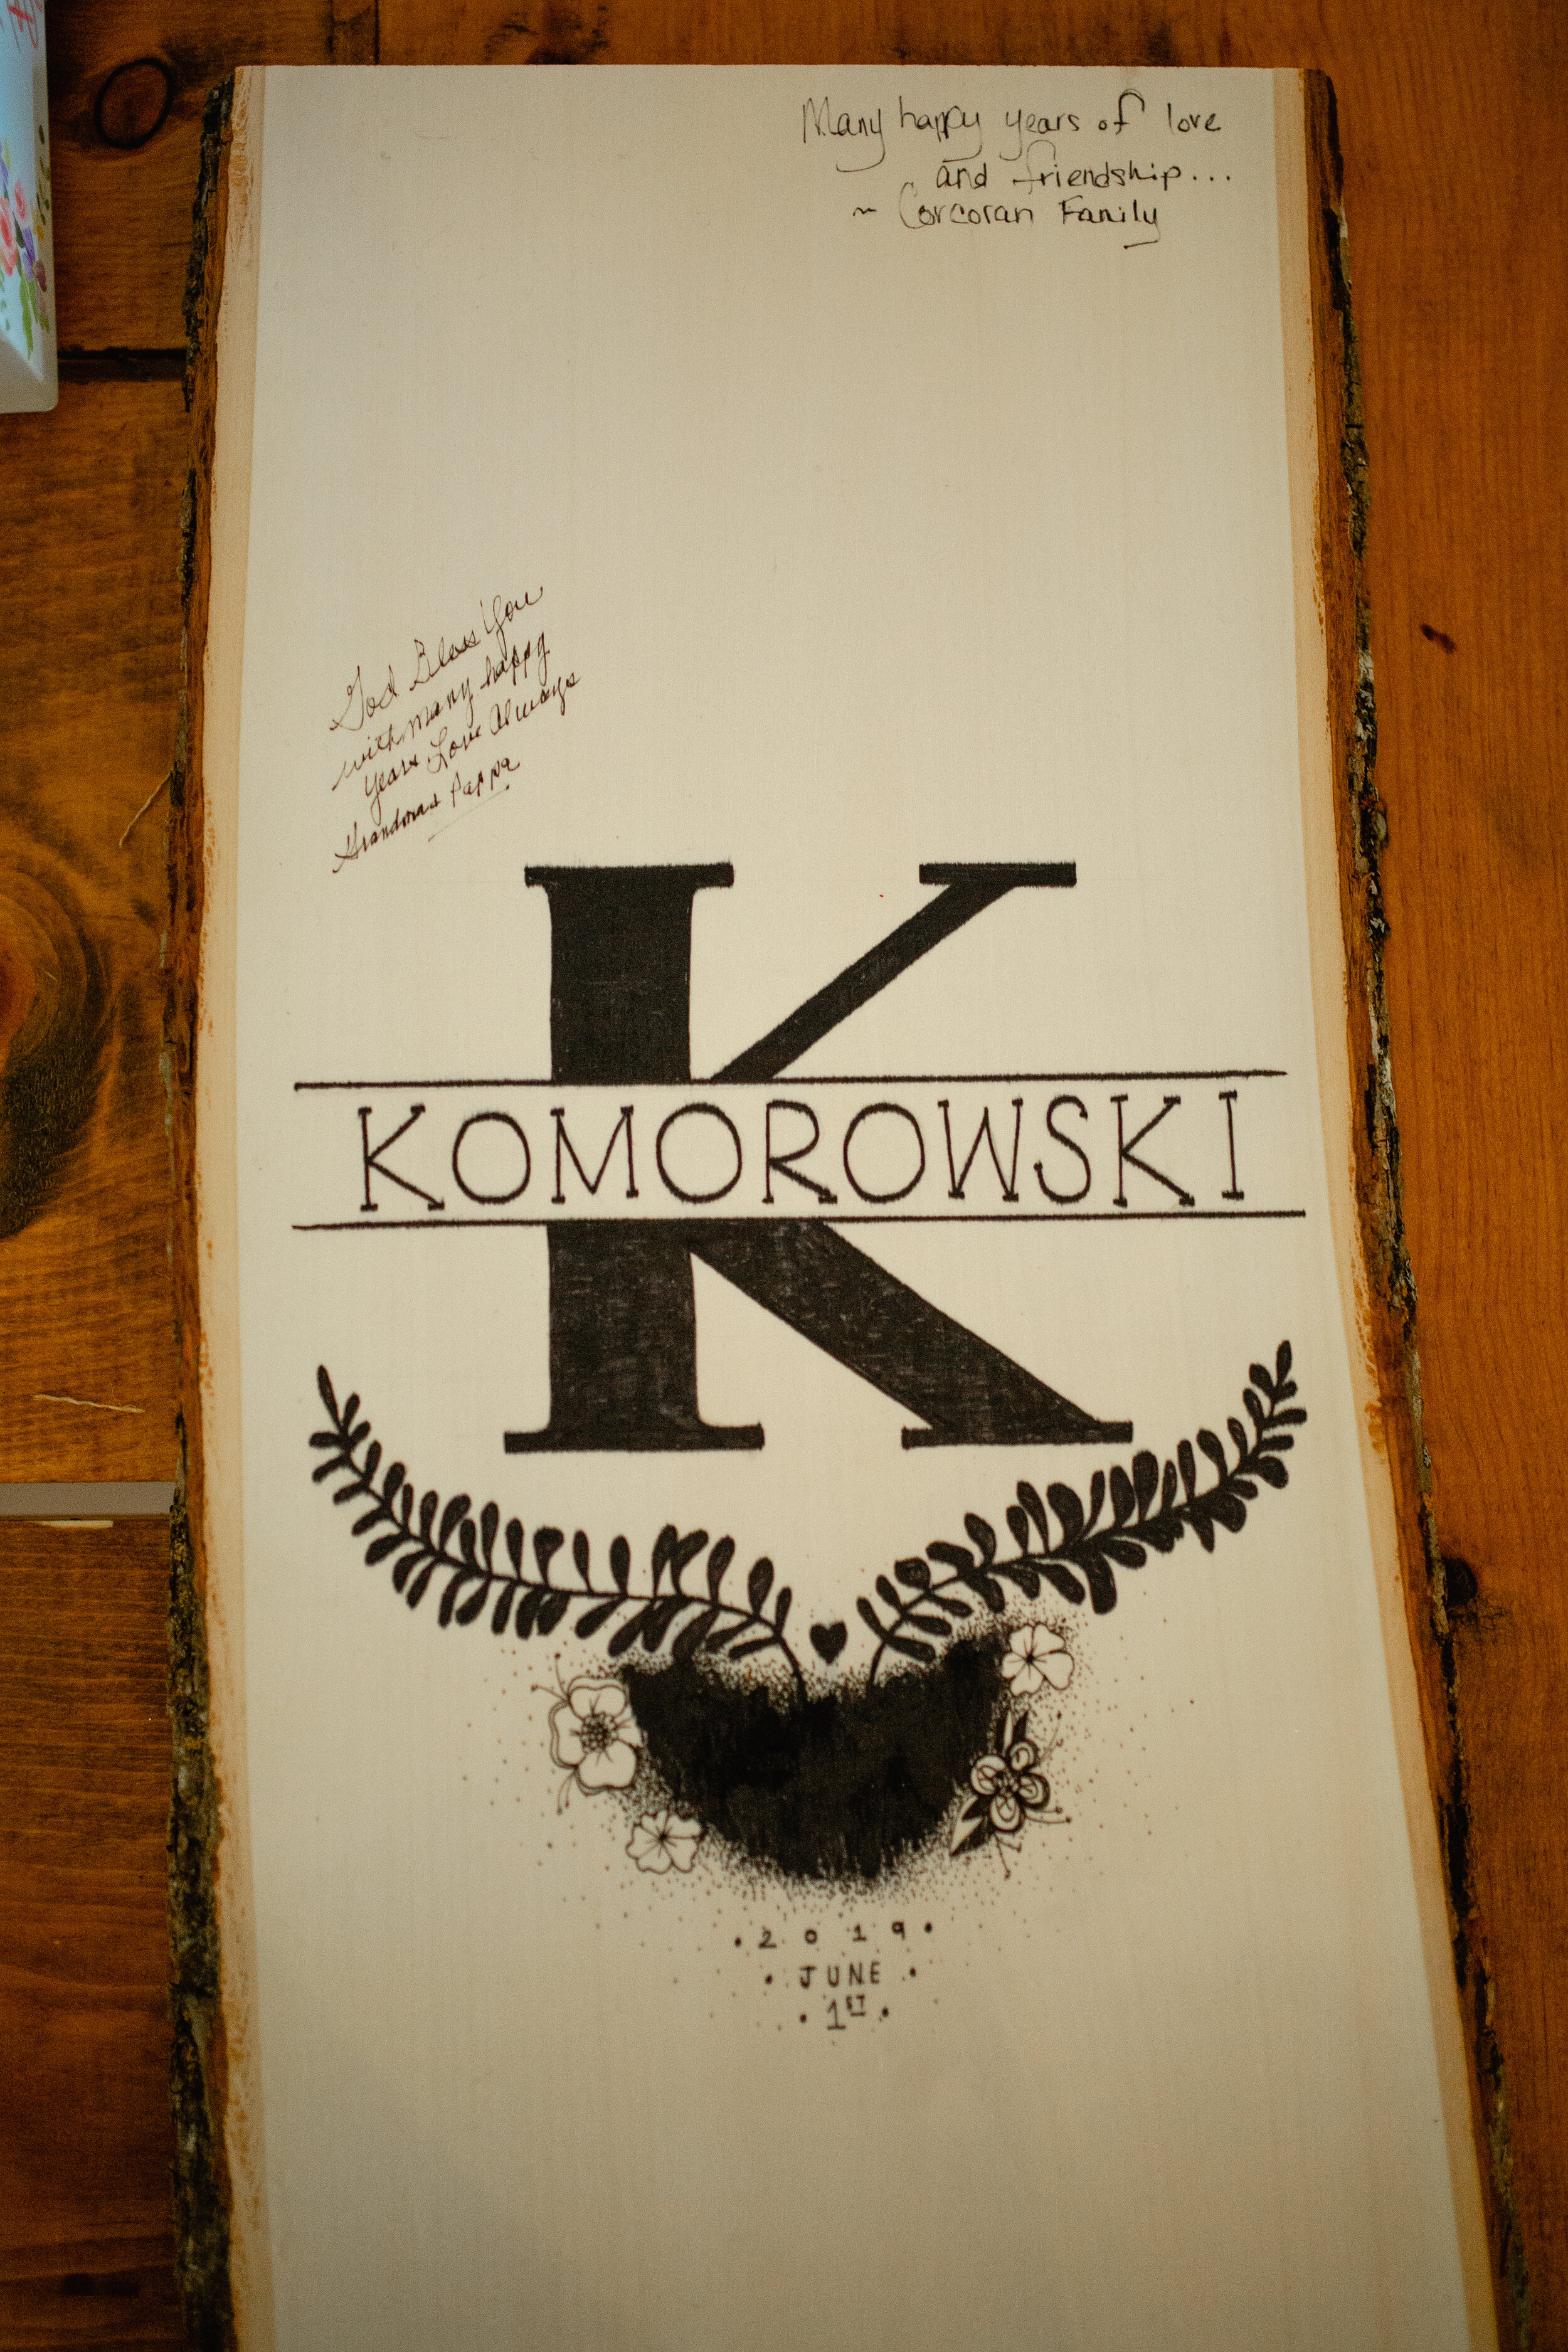 Many happy years of love
and friendship...
~ Corcoran Family
God Bless You
with many happy
years Love Always
Grandma & Pappa
K
KOMOROWSKI
• 2 0 1 9 •
• JUNE •
• 1ST •